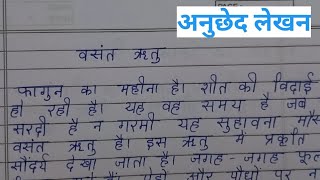 अनुछेद लेखन
वसंत ऋतु
फागुन का महीना है। शीत की विदाई
हो रही है। यह वह समय है जब
सरदी है न गरमी यह सुहावना मौस
वसंत ऋतु है। इस ऋतु में प्रकृति
सौंदर्य देखा जाता है। जगह-जगह फूल